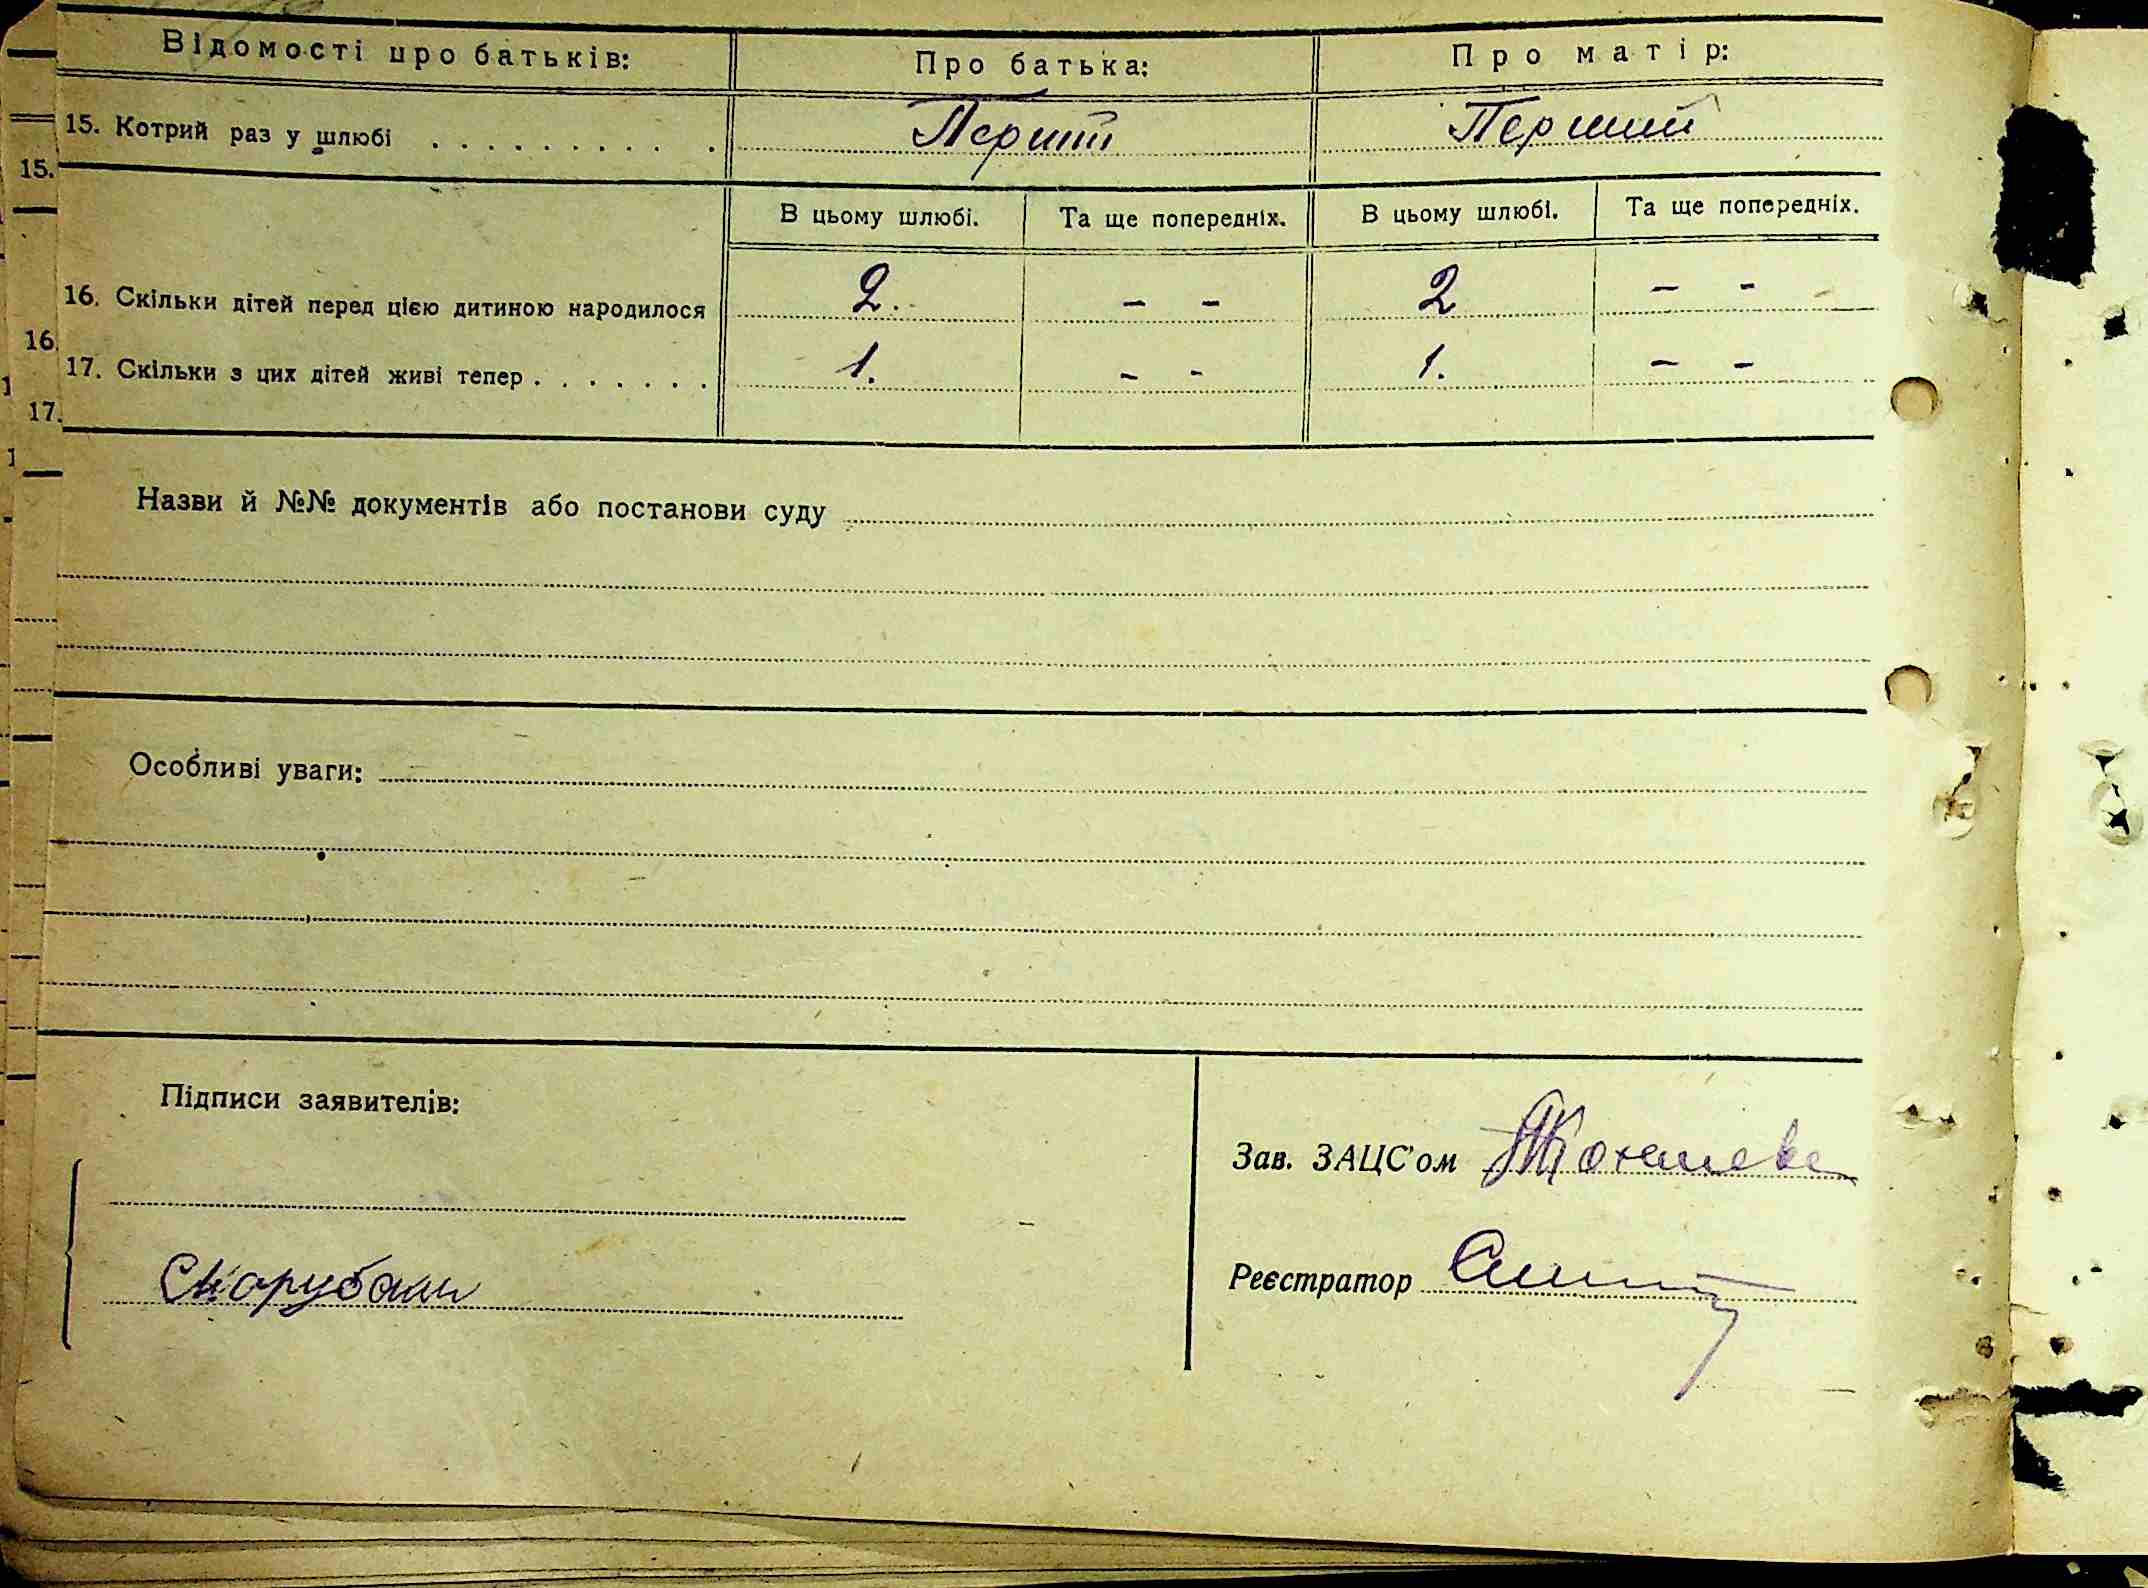 Відомості про батьків: Про батька: Про матір:
15. Котрий раз у шлюбі . . . . . . . . . . Перший Перший
15.
В цьому шлюбі. Та ще попередніх. В цьому шлюбі. Та ще попередніх.
16. Скільки дітей перед цією дитиною народилося 2. – – 2 – –
16.
17. Скільки з цих дітей живі тепер . . . . . . . 1. – – 1. – –
17.
Назви й №№ документів або постанови суду
Особливі уваги:
Підписи заявителів:
Зав. ЗАЦС'ом
Реєстратор